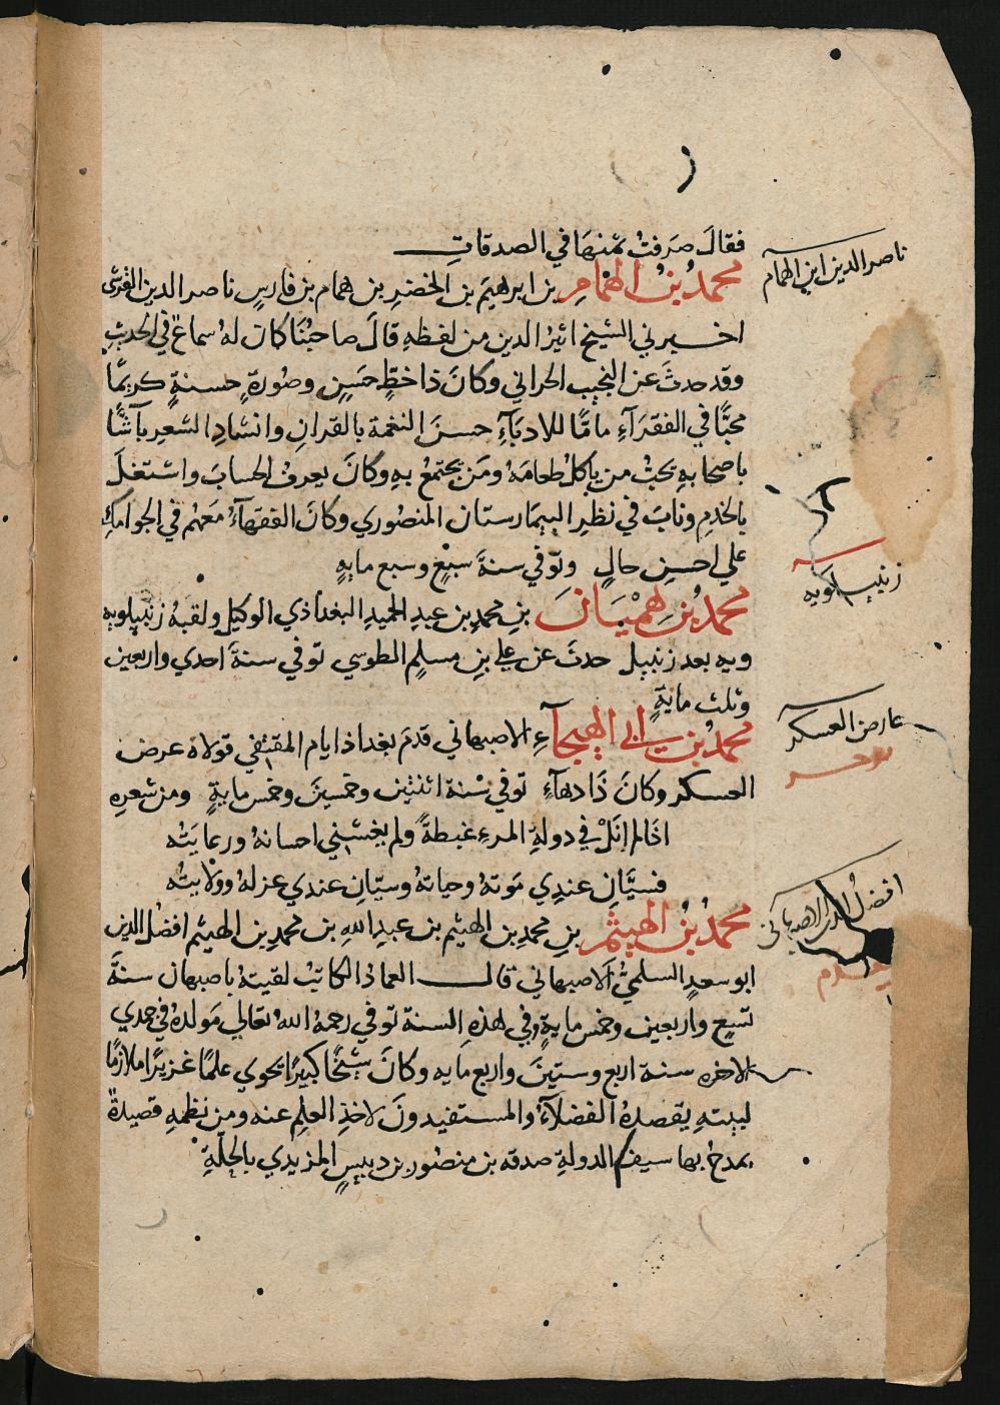 فقالَ صرفتُ ثمنهَا في الصدقاتِ
ناصر الدين ابن الهمام
محمدُ بنُ الهُمَامِ بن ابرهيمَ بن الخضرِ بن همام بن فارسٍ ناصر الدين القرشي
اخبرني الشيخ اثيرُ الدين من لفظهِ قالَ صاحبُنَا كانَ لهُ سماعٌ في الحديثِ
وقد حدثَ عن النجيب الحراني وكانَ ذا خطٍّ حسَنٍ وصُورةٍ حسنةٍ كريمًا
محبًّا في الفقرَآءِ مامًّا للادبَآءِ حسنَ النغمة بالقرانِ وانشادِ الشعرِ باشًّا
باصحابهِ يحبُّ من ياكلُ طعامَهُ ومَن يجتمعُ بهِ وكانَ يعرفُ الحسابَ واشتغلَ
بالخدمِ ونابَ في نظرِ البيمَارستان المنصُوري وكانَ الفقهآءُ معَهُم في الجوامكِ
علي احسنِ حالٍ وتوفي سنةَ سبعٍ وسبع مايةٍ
زنبيلويه
محمدُ بنُ هِمْيَانَ بنِ محمدِ بن عبدِ الحميدِ البغداذي الوكيل ولقبهُ زنبيلويه
ويه بعد زنبيل حدثَ عن علي بنِ مسلمٍ الطوسي توفي سنةَ احدي واربعين
وثلث مايةٍ
عارض العسكر
محمدُ بن ابي الهيجآءِ الاصبهاني قدمَ بغداذ ايام المقتفي فولاهُ عرضَ
العسكر وكانَ ذَا دهآءٍ توفي سْنة اثنتين وخمسينَ وخمس مايةٍ ومن شعرِه
اذا لم انَلْ في دولةِ المرءِ غبطةً ولم يغشني احسانهُ ورعايَتُه
فسيَّانِ عندِي مَوتهُ وحياتهُ وسيّانِ عندي عزلهُ وولايتُه
افضل الدين الاصبهاني
محمدُ بنُ الهيثمِ بنِ محمدِ بن الهيثم بن عبدِ اللهِ بن محمدِ بن الهيثم افضلُ الدين
ابو سعدٍ السلميُّ الاصبهاني قالـــ العماذُ الكاتبُ لقيتهُ باصبهان سنةَ
تسعٍ واربعين وخمس مايةٍ وفي هذهِ السنة توفي رحمهُ اللهُ تعَالي مَولدهُ في جمدي
الاخره سنة اربع وستينَ واربع مايه وكانَ شيخًا كبيرًا يحوي علمًا غزيرًا ملازمًا
لبيتهِ يقصدهُ الفضلآءُ والمستفيدونَ لاخذِ العلمِ عنه ومن نظمهِ قصيدةٌ
يمدحُ بها سيفَ الدولةِ صدقه بن منصُور بن دبيسٍ المزيدي بالحلّةِ